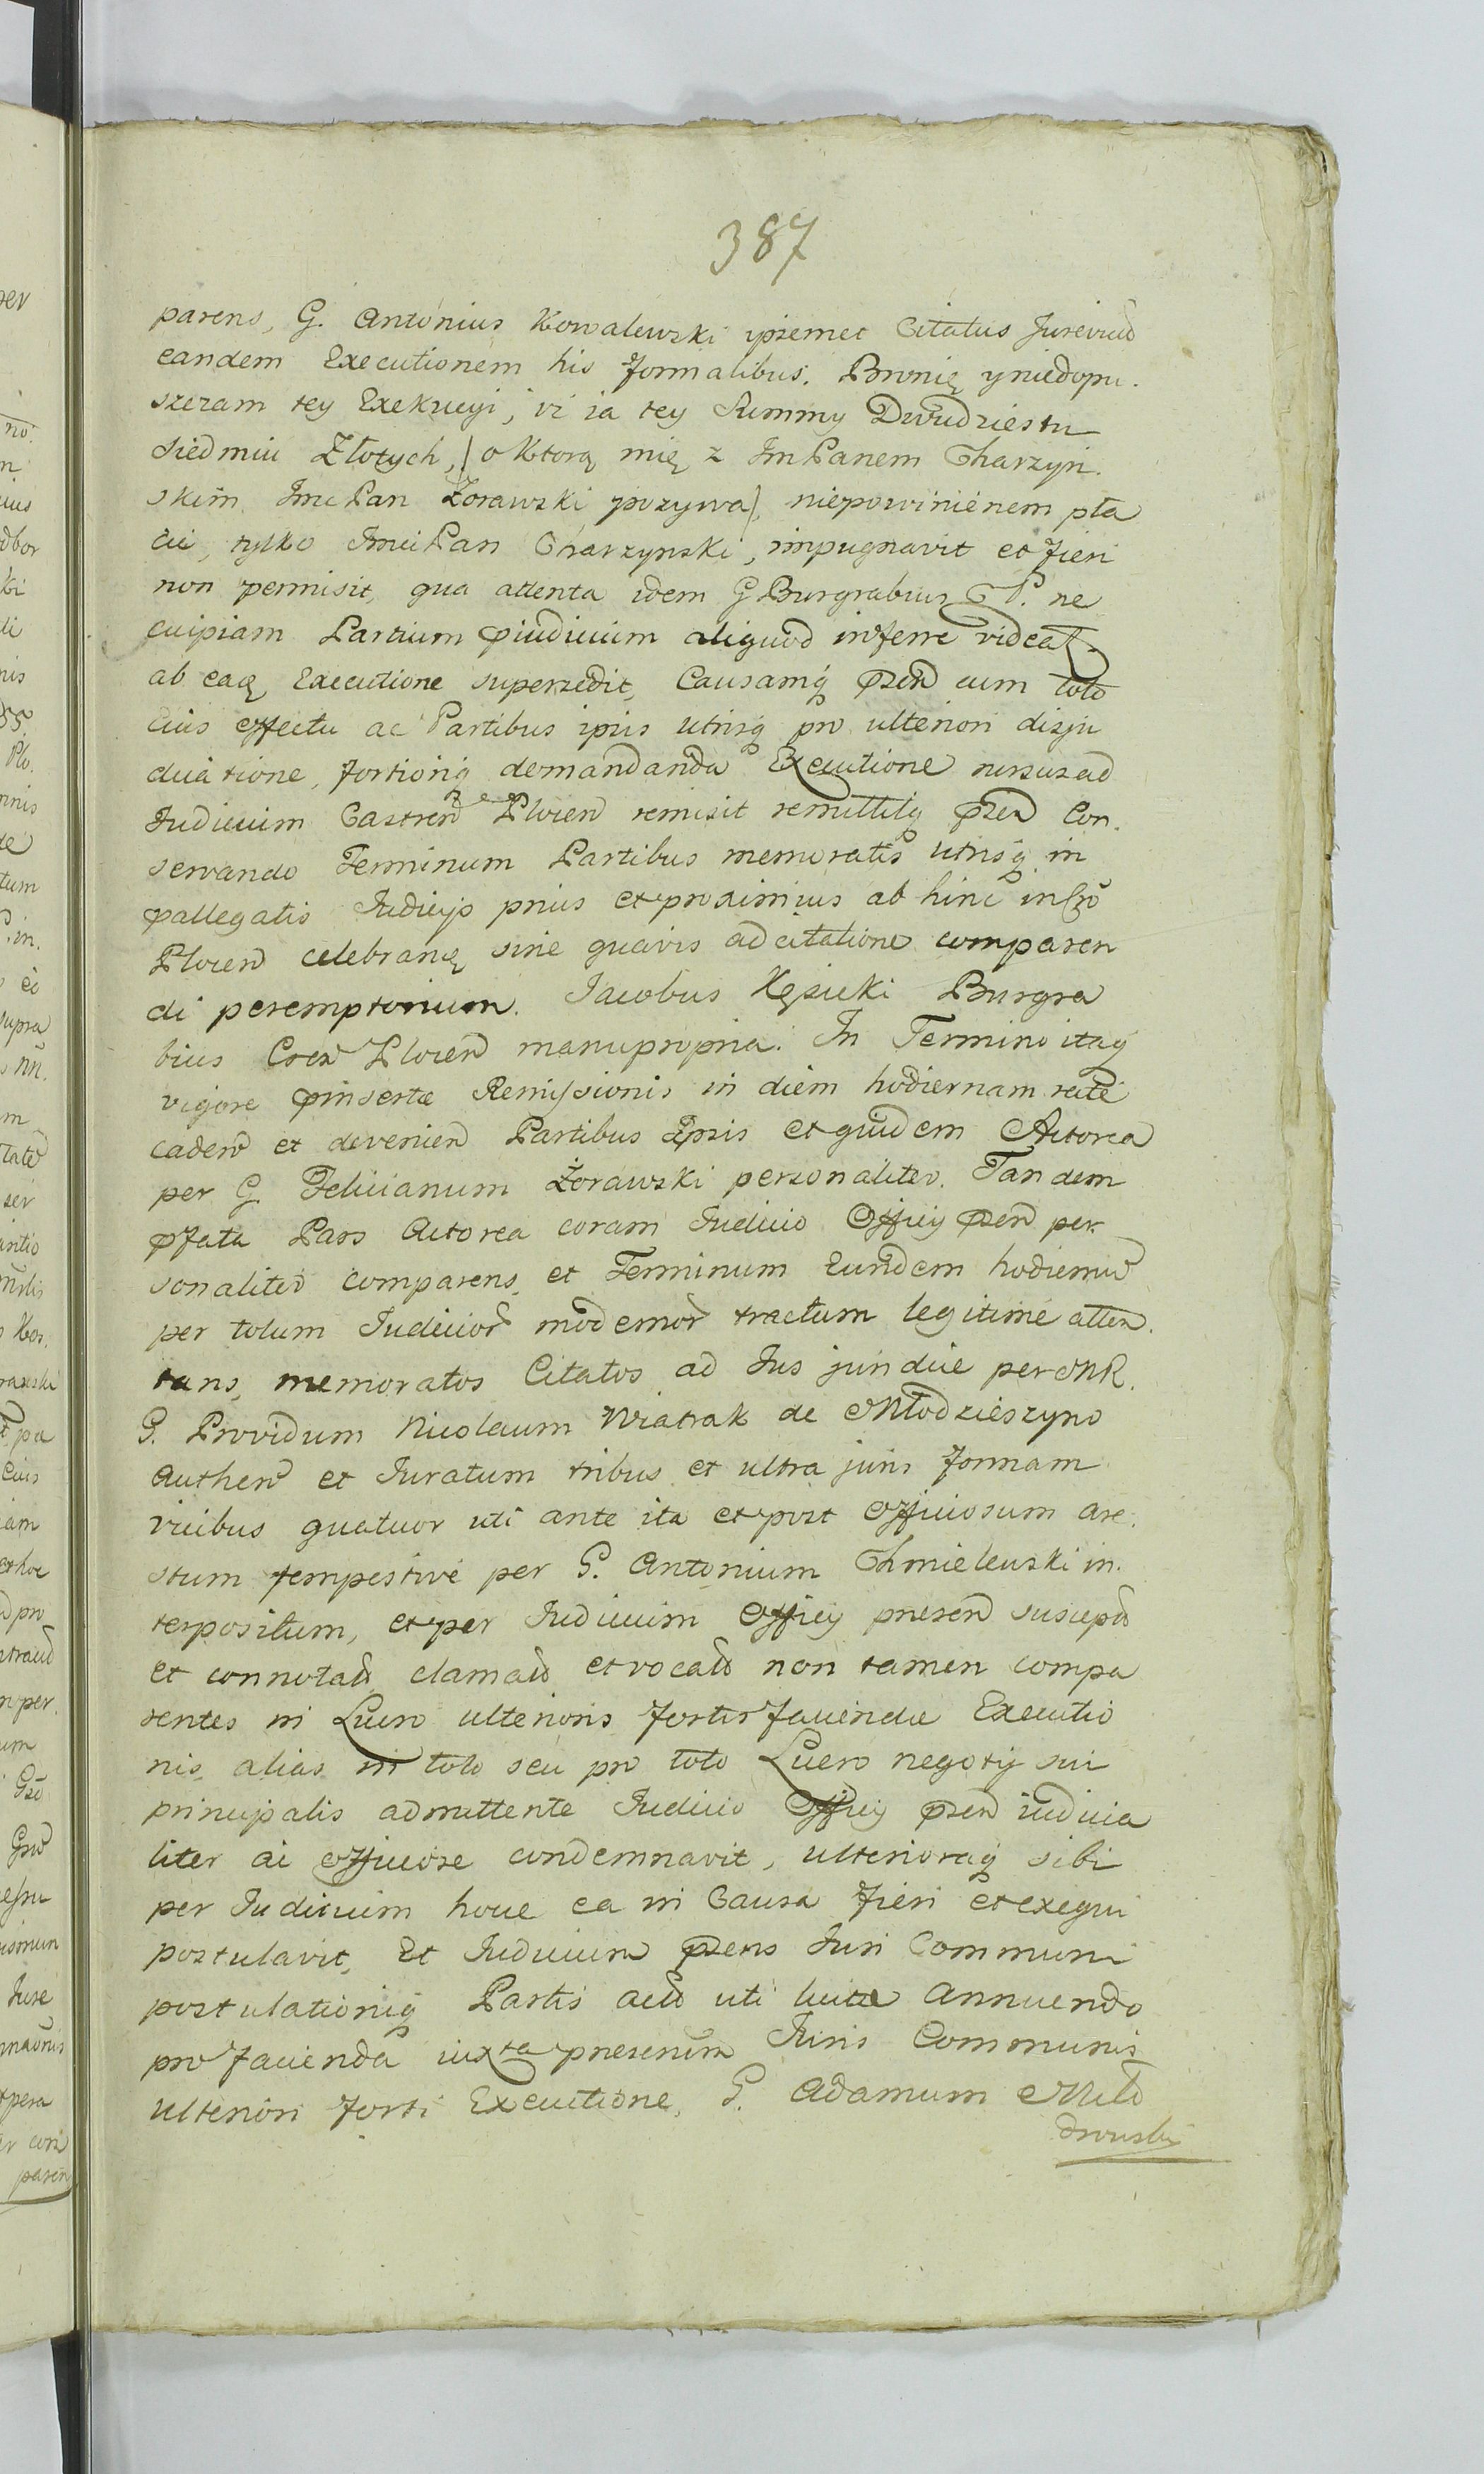 387
parens, G. Antonius Kowalewski ipsemet Citatus
eandem Executionem his formalibus. Bronię y niedopu.
szczam tey Exekucyi, iż ia tey Summy Dwudziestu
siedmiu Złotych, | o Ktorą mię z ImPanem Charzyn.
skim ImcPan Żorawski pozywa |, niepowinienem pła
cić, tylko ImciPan Charzynski, impugnavit et fieri
non permisit, qua attenta idem G Burgrabius C P. ne
cuipiam Partium pjudicium aliquod inferre videat.
ab eaq Executione supersedit, Causamq psen cum toto
eius effectu ac Partibus ipsis utrisq pro ulteriori disju
dicatione, fortioriq demandanda Executione rursus ad
Judicium Castren Plocen remisit remittitq psen Con.
servando Terminum Partibus memoratis utrisq in
pallegatis Judicijs prius et proximius ab hinc in Cro
Plocen celebran sine quavis adcitatione comparen
di peremptorium. Jacobus Kęsicki Burgra
bius Cren Plocen manupropria. In Termino itaq
vigore pinsertæ Remissionis in diem hodiernam rite
caden et devenien Partibus Ipsis et quidem Actorea
per G. Felicianum Żorawski personaliter. Tandem
pfata Pars Actorea coram Judicio Officij psen per
sonaliter comparens, et Terminum Eundem hodiernu
per totum Judicior modernor tractum legitime atten.
tans, memoratos Citatos ad Jus juridice per MR.
P. Providum Nicolaum Wiatrak de Młodzieszyno
Authen et Juratum tribus et ultra juris formam
vicibus quatuor uti ante ita et post Officiosum are.
stum tempestive per G. Antonium Chmielewski in.
terpositum, et per Judicium Officij presen suscept
et connotat clamat et vocat non tamen compa
rentes in Lucro ulterioris fortis faciendæ Executio
nis, alias in toto seu pro toto Lucro negotij sui
principalis admittente Judicio Officij psen iudicia
liter ac Officiose condemnavit, ulterioraq sibi
per Judicium hocce ea in Causa fieri et exequi
postulavit, Et Judicium psens Juri Communi
postulationiq Partis act uti licitæ Annuendo
pro facienda iuxta Juris Communis
ulteriori forti Executione, G. Adamum Mło
drowski